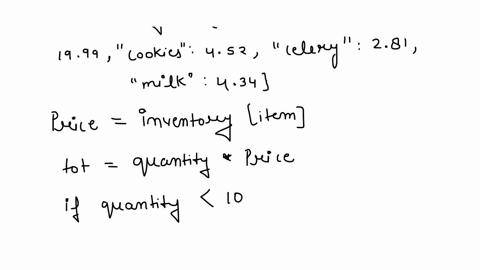 19.99, "cookies": 4.52, "celery": 2.81,
"milk": 4.34]
Price = inventory [item]
tot = quantity * Price
if quantity < 10